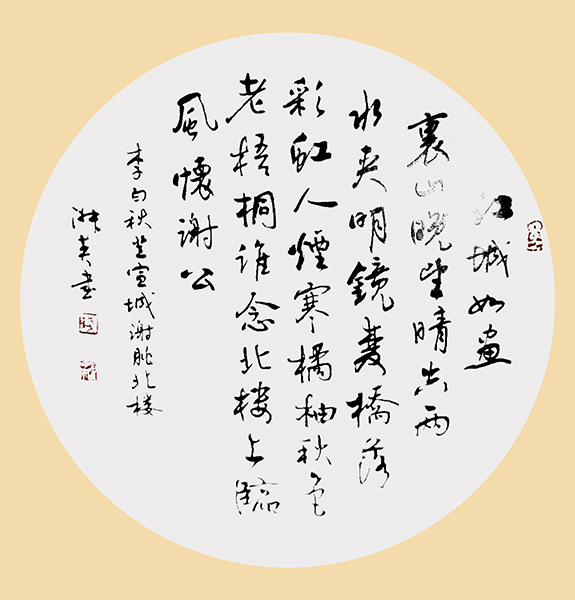 江城如畫
裏山晚望晴空兩
水夾明鏡雙橋落
彩虹人煙寒橘柚秋色
老梧桐誰念北樓上臨
風懷謝公
李白秋登宣城謝朓北樓
英書